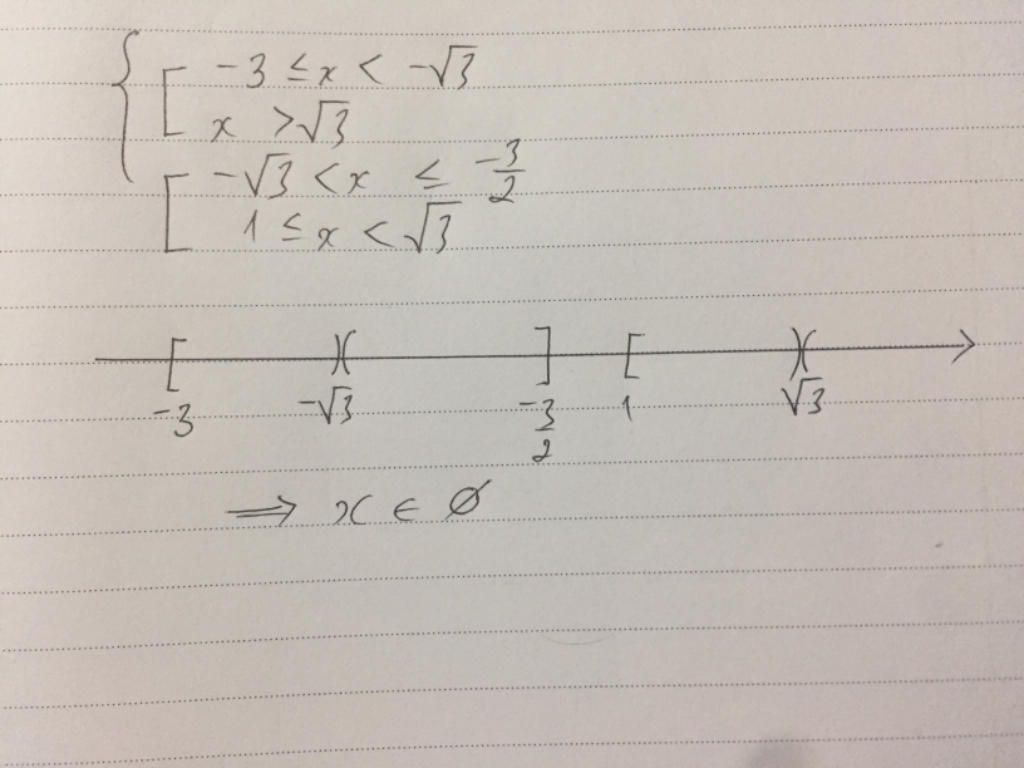 { [ -3 ≤ x < -√3
x > √3
[ -√3 < x ≤ -3/2
1 ≤ x < √3
[ )( ] [ )(
-3 -√3 -3/2 1 √3
⟹ x ∈ ∅